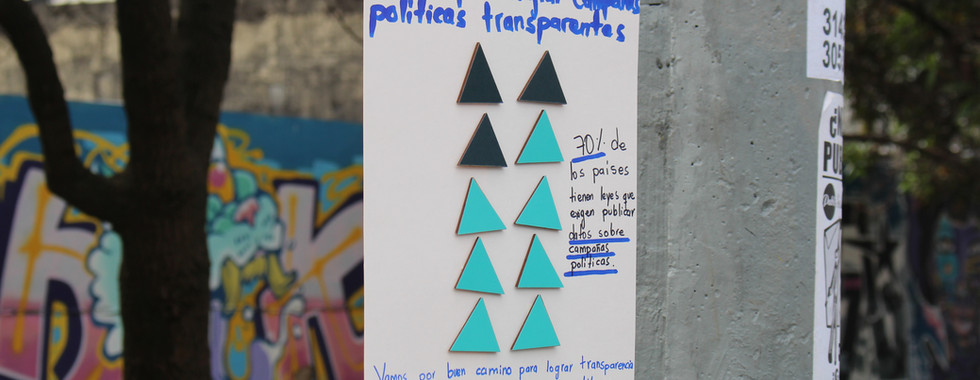 lograr campañas
políticas transparentes
70% de
los países
tienen leyes que
exigen publicar
datos sobre
campañas
políticas.
Vamos por buen camino para lograr transparencia
314
305
¿
PU